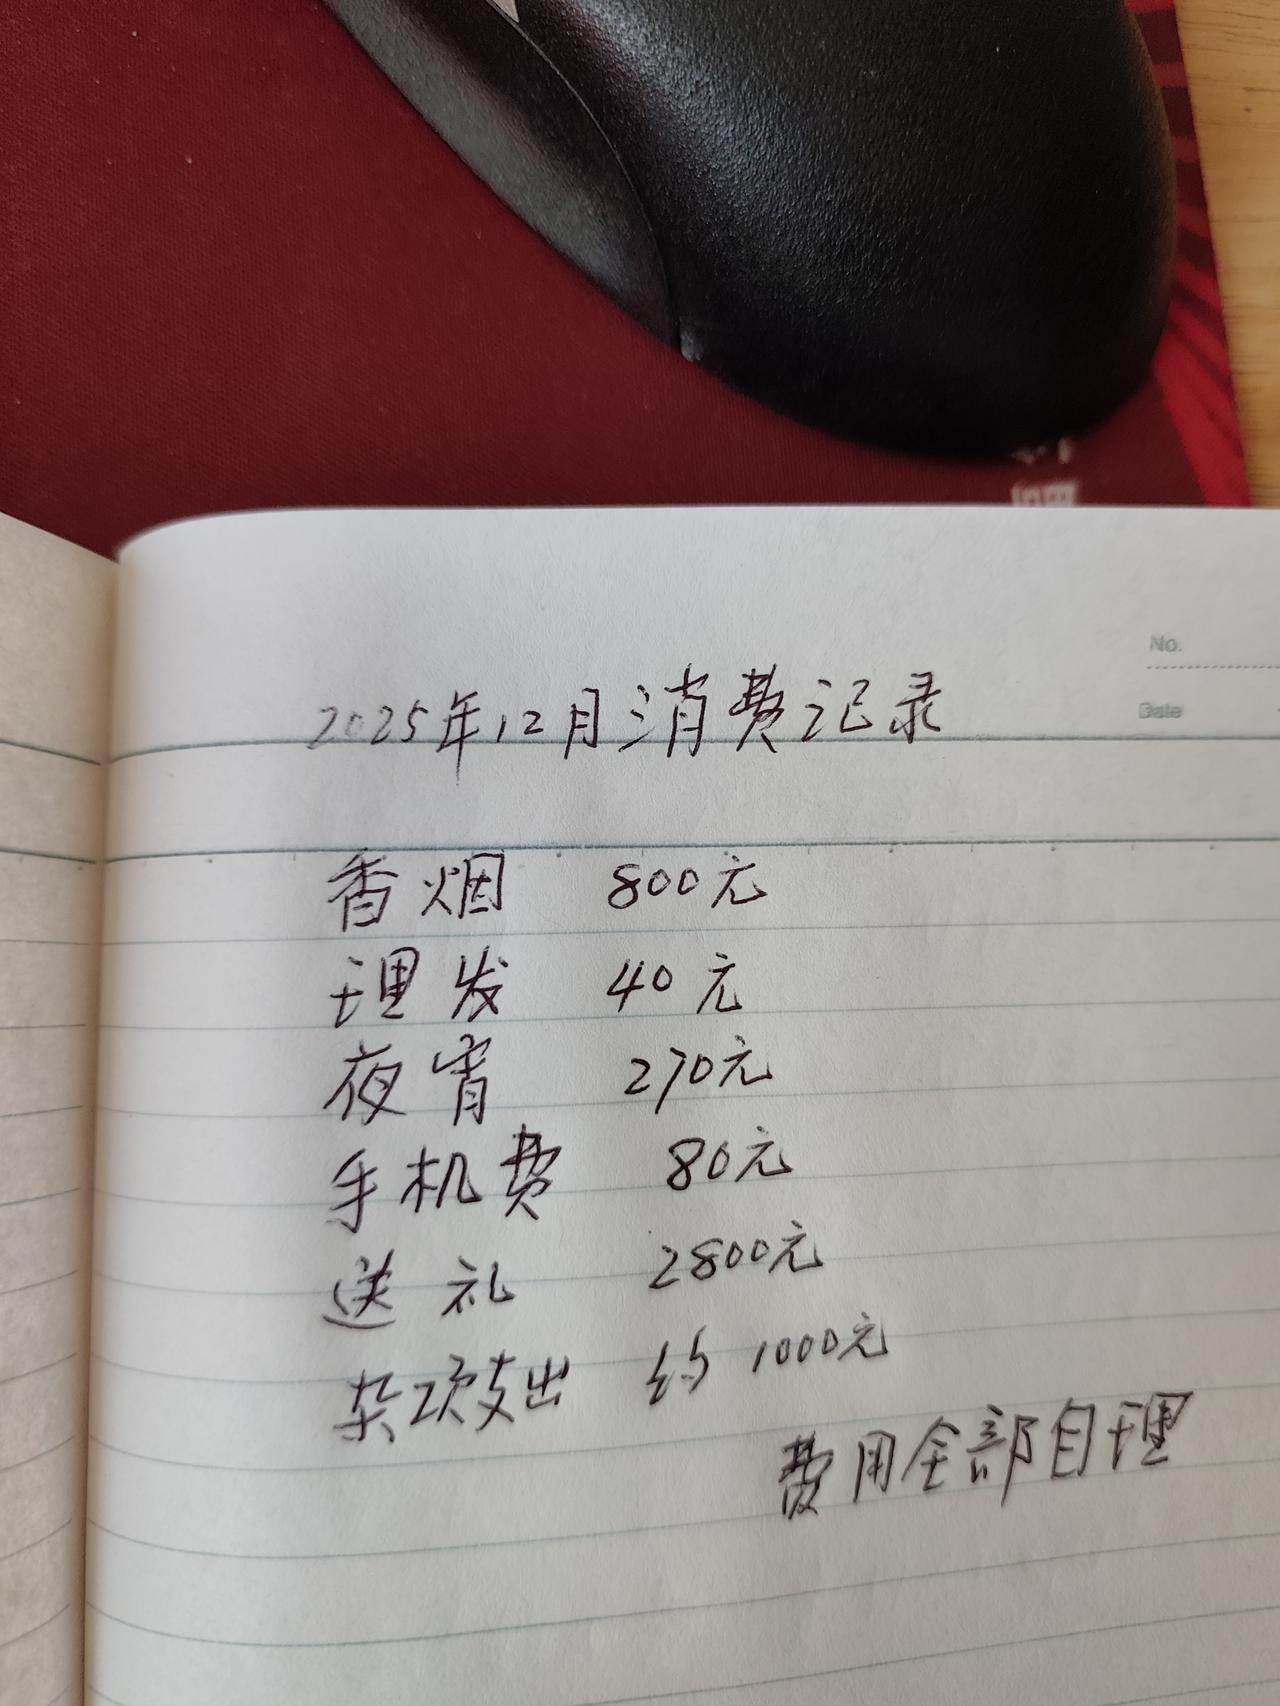 No.
Date
2025年12月消费记录
香烟 800元
理发 40元
夜宵 270元
手机费 80元
送礼 2800元
杂项支出 约1000元
费用全部自理